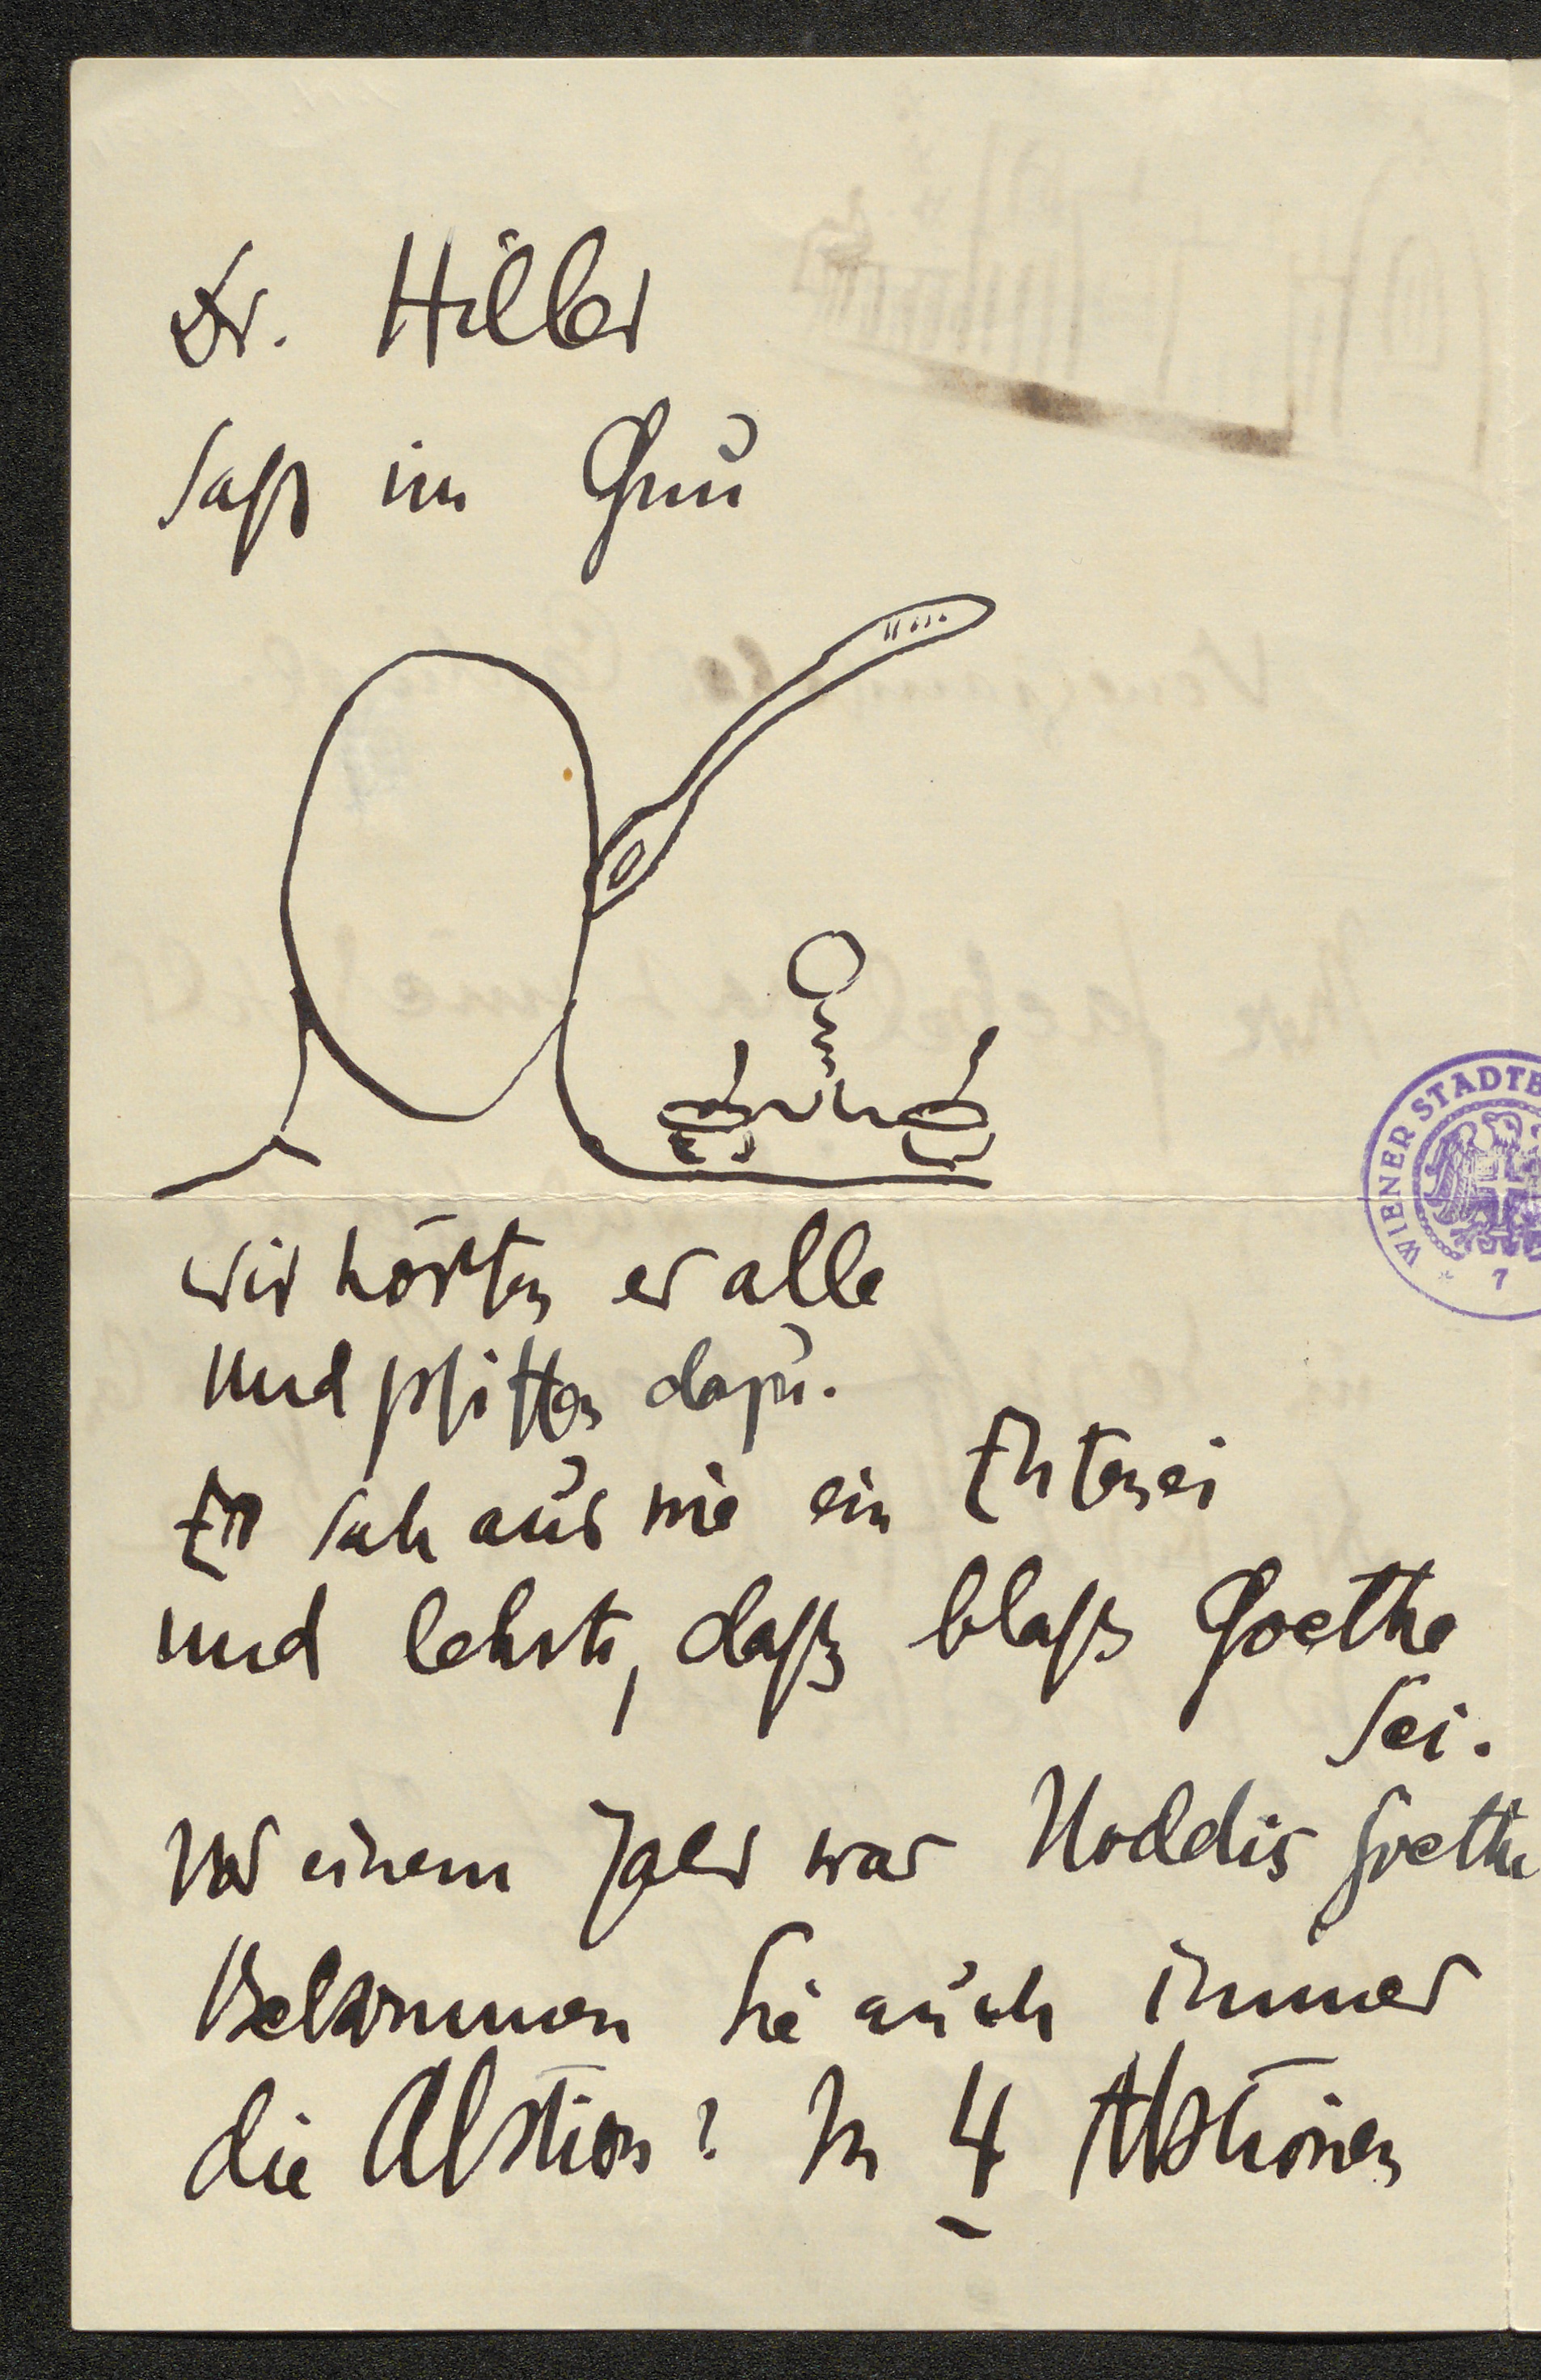 Dr. Hiller
saß im Gnu
wir hörten es alle
und pfiffen dazu.
Er sah aus wie ein Entenei
und lehrte, daß blaß Goethe
sei.
Vor einem Jahr war Hoddis Goethe
Bekommen Sie auch immer
die Aktion? In 4 Aktionen
WIENER STADTB
7